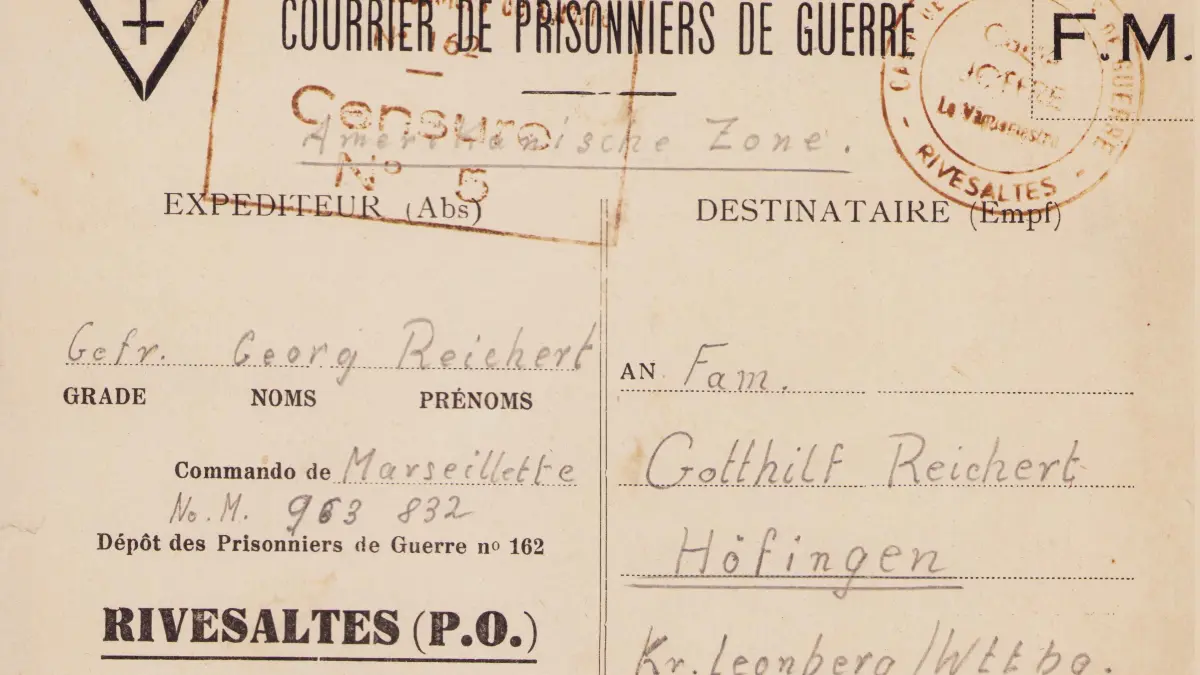 COURRIER DE PRISONNIERS DE GUERRE
F.M.
N° 162
Censure
N° 5
Camp
JOFFRE
GUERRE
- RIVESALTES -
Amerikanische Zone.
EXPEDITEUR (Abs)
DESTINATAIRE (Empf)
Gefr. Georg Reichert
GRADE NOMS PRÉNOMS
Commando de Marseillette
No. M. 963 832
Dépôt des Prisonniers de Guerre nº 162
RIVESALTES (P.O.)
AN Fam.
Gotthilf Reichert
Höfingen
Kr. Leonberg / Wttbg.